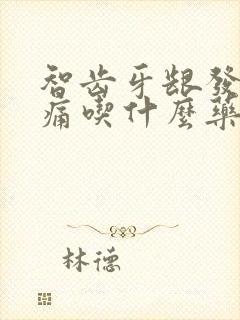 智齿牙龈發
痛喫什麼藥
林德